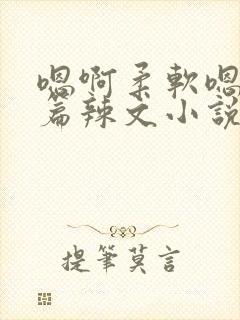 嗯啊柔軟嗯
篇辣文小說
提筆莫言